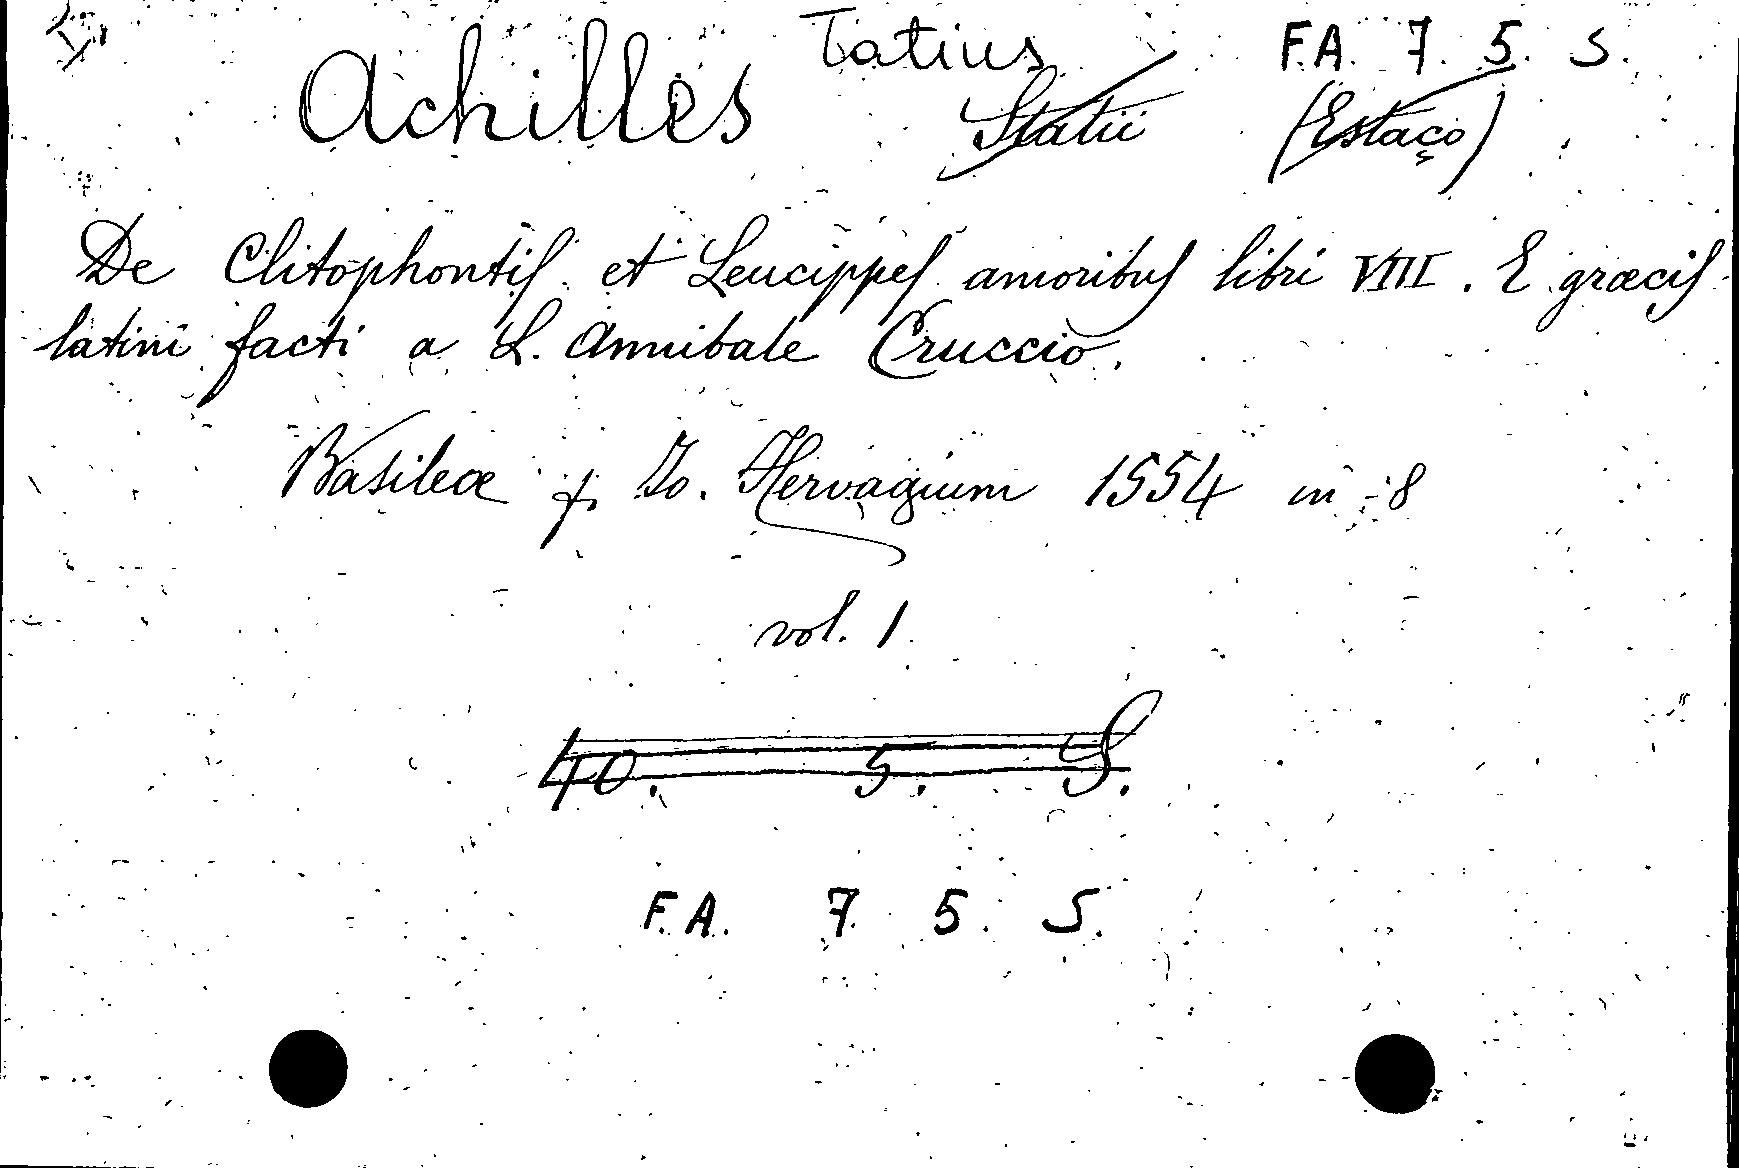 Achilles Tatius Statii (Estaço) F.A. 7. 5. S.
De Clitophontis et Leucippes amoribus libri VIII. E græcis
latini facti a L. Annibale Cruccio.
Basileæ p. Jo. Hervagium 1554 in-8
vol. 1
40. 5. S.
F.A. 7. 5. S.